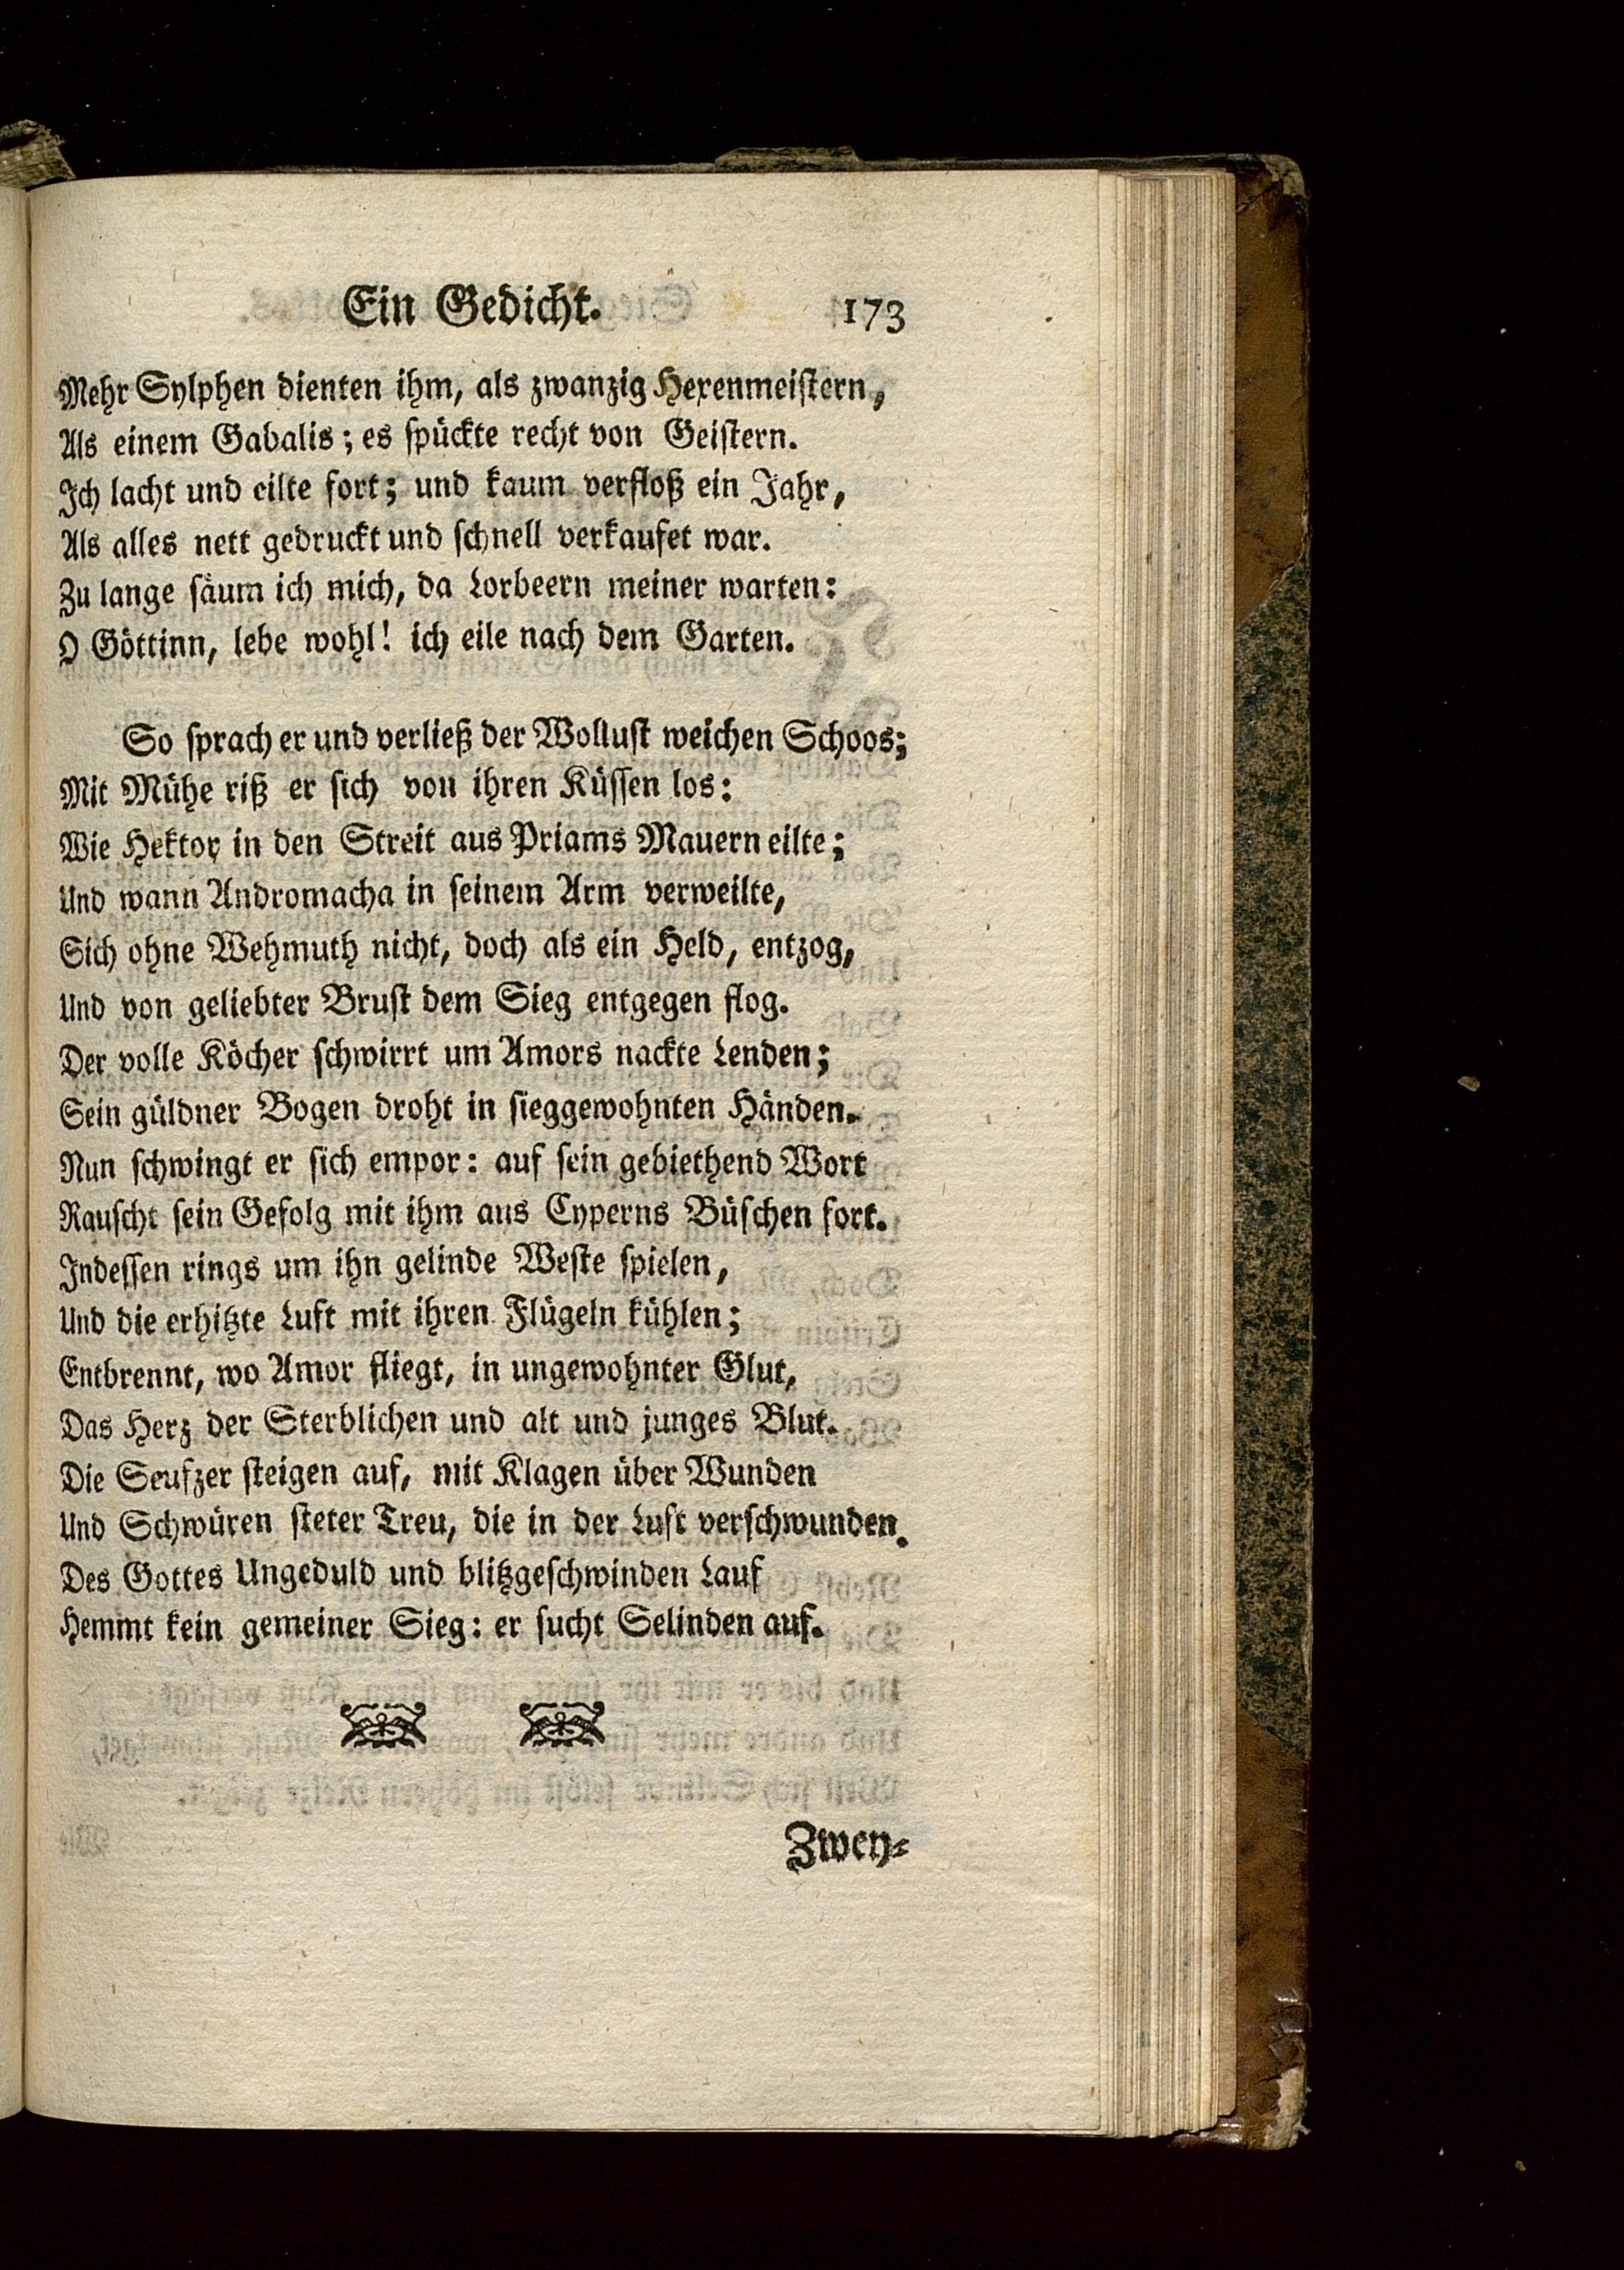 Ein Gedicht. 173
Mehr Sylphen dienten ihm, als zwanzig Hexenmeistern,
Als einem Gabalis; es spückte recht von Geistern.
Ich lacht und eilte fort; und kaum verfloß ein Jahr,
Als alles nett gedruckt und schnell verkaufet war.
Zu lange säum ich mich, da Lorbeern meiner warten:
O Göttinn, lebe wohl! ich eile nach dem Garten.
So sprach er und verließ der Wollust weichen Schoos;
Mit Mühe riß er sich von ihren Küssen los:
Wie Hektor in den Streit aus Priams Mauern eilte;
Und wann Andromacha in seinem Arm verweilte,
Sich ohne Wehmuth nicht, doch als ein Held, entzog,
Und von geliebter Brust dem Sieg entgegen flog.
Der volle Köcher schwirrt um Amors nackte Lenden;
Sein güldner Bogen droht in sieggewohnten Händen.
Nun schwingt er sich empor: auf sein gebiethend Wort
Rauscht sein Gefolg mit ihm aus Cyperns Büschen fort.
Indessen rings um ihn gelinde Weste spielen,
Und die erhitzte Luft mit ihren Flügeln kühlen;
Entbrennt, wo Amor fliegt, in ungewohnter Glut,
Das Herz der Sterblichen und alt und junges Blut.
Die Seufzer steigen auf, mit Klagen über Wunden
Und Schwüren steter Treu, die in der Luft verschwunden.
Des Gottes Ungeduld und blitzgeschwinden Lauf
Hemmt kein gemeiner Sieg: er sucht Selinden auf.
Zwey-